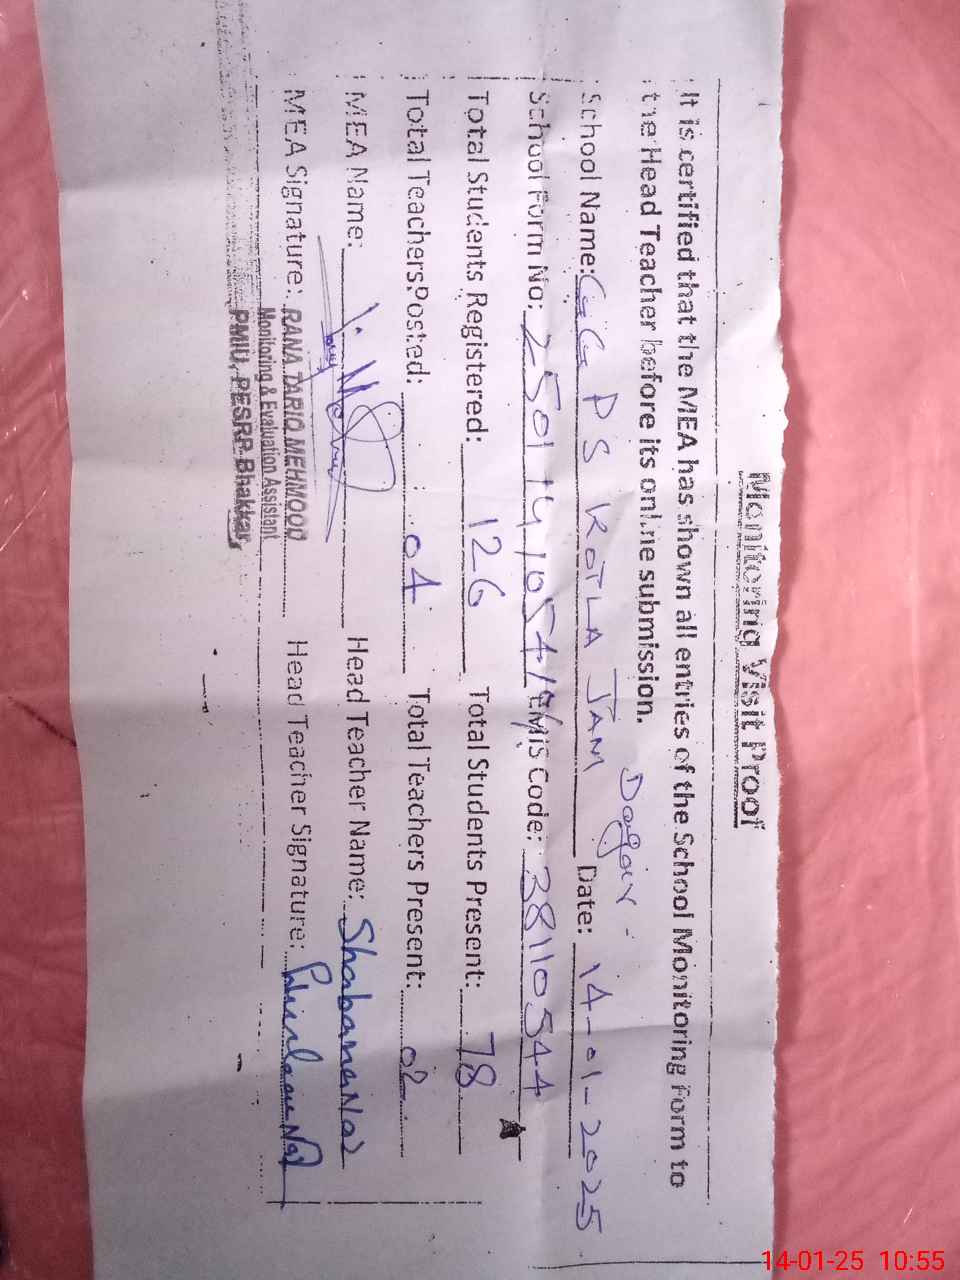 Monitoring Visit Proof
It is certified that the MEA has shown all entries of the School Monitoring Form to
the Head Teacher before its online submission.
Daggar
School Name: GGPS KOTLA JAM Date: 14-01-2025
School Form No: EMIS Code: 38110544
Total Students Registered: 126 Total Students Present: 78
Total Teachers Posted: 04 Total Teachers Present: 02
MEA Name: Head Teacher Name: Shabana Naz
MEA Signature: RANA TARIQ MEHMOOD Head Teacher Signature:
Monitoring & Evaluation Assistant
PMIU, PESRP Bhakkar
14-01-25 10:55